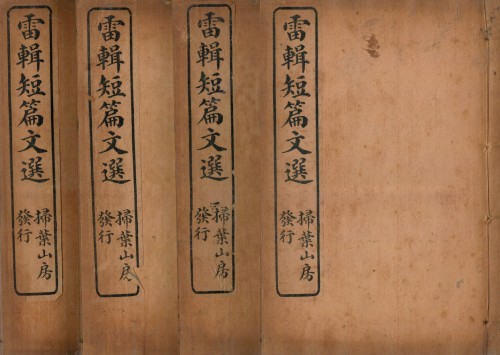 雷輯短篇文選
掃葉山房
發行
雷輯短篇文選
掃葉山房
發行
雷輯短篇文選
掃葉山房
發行
雷輯短篇文選
掃葉山房
發行